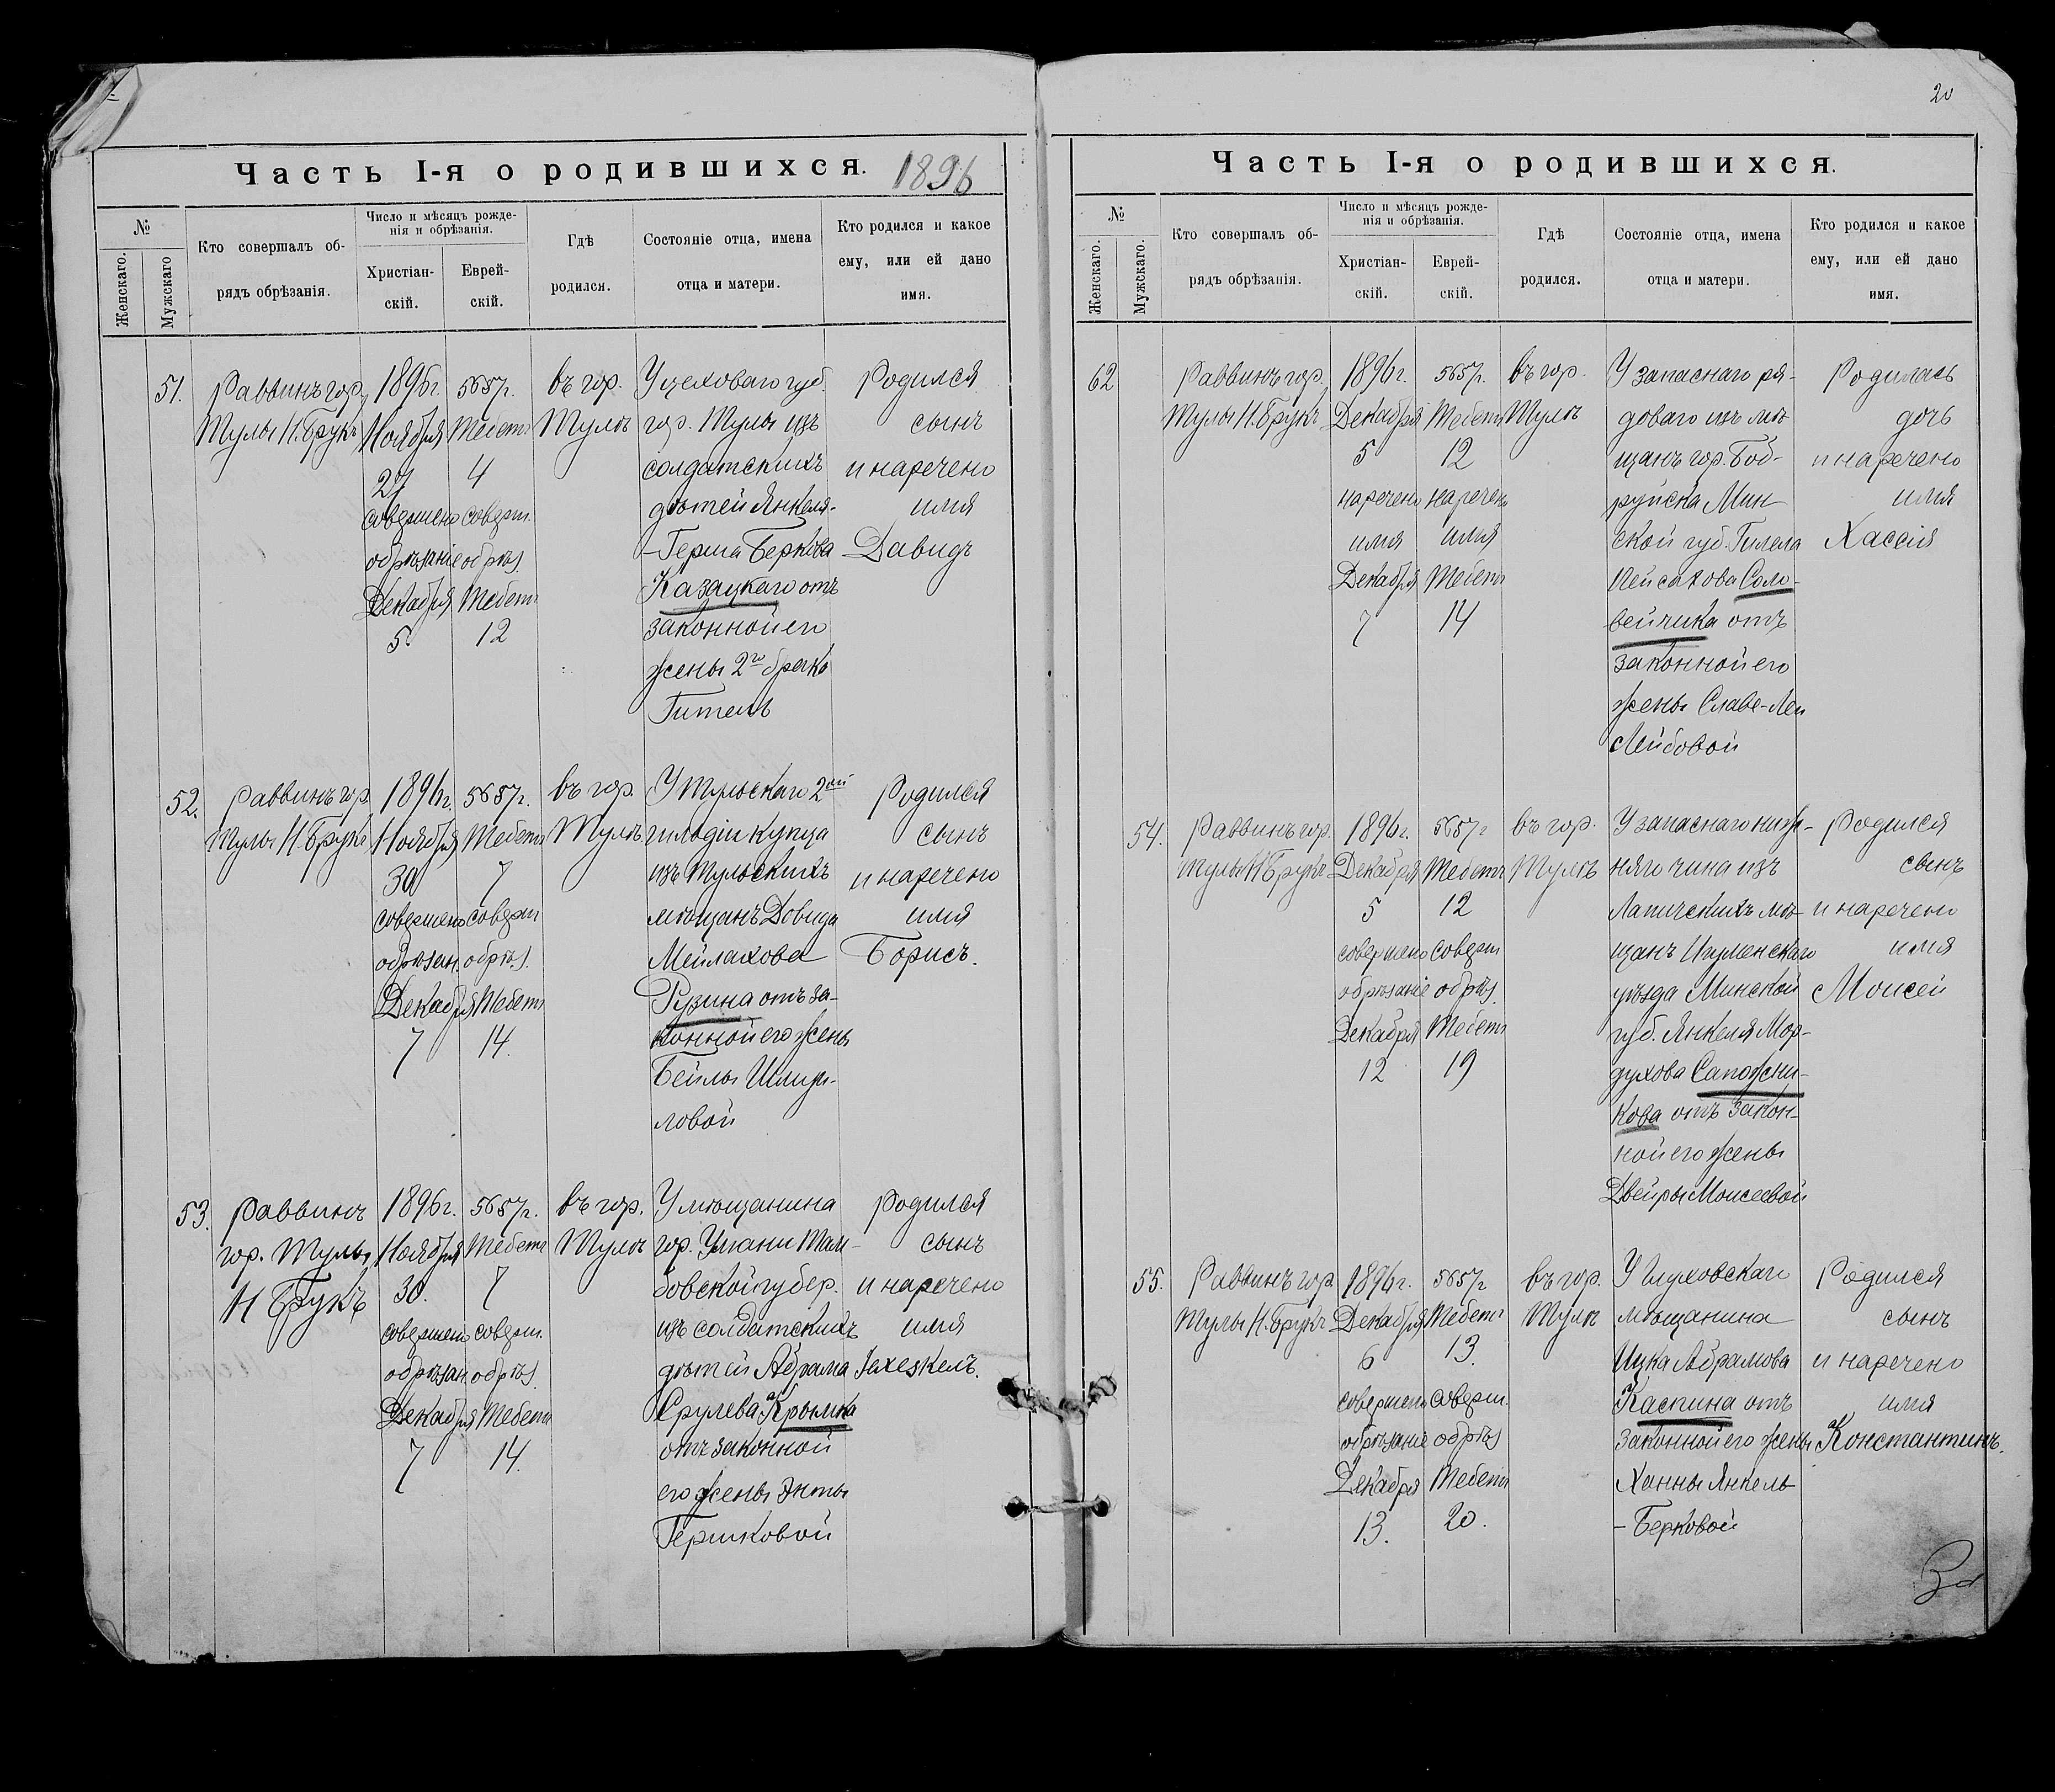 Часть I-я о родившихся. 1896
№
Женскаго.
Мужскаго
Кто совершалъ об-
рядъ обрѣзанія.
Число и мѣсяцъ рожде-
нія и обрѣзанія.
Христіан-
скій.
Еврей-
скій.
Гдѣ
родился.
Состояніе отца, имена
отца и матери.
Кто родился и какое
ему, или ей дано
имя.
51.
Раввинъ гор.
Тулы Н. Брукъ
1896г.
Ноября
27
совершено
обрѣзаніе
Декабря
5.
5657г.
Тебетъ
4
соверш.
обрѣз.
Тебетъ
12
въ гор.
Тулѣ
У цеховаго губ.
гор. Тулы изъ
солдатскихъ
дѣтей Янкеля-
-Герша Беркова
Казацкаго отъ
законной его
жены 2го брака
Гитель
Родился
сынъ
и наречено
имя
Давидъ
52.
Раввинъ гор.
Тулы Н. Брукъ
1896г.
Ноября
30
совершено
обрѣзан.
Декабря
7
5657г.
Тебетъ
7
соверш
обрѣз.
Тебетъ
14.
въ гор.
Тулѣ.
У Тульскаго 2ой
гильдіи купца
изъ Тульскихъ
мѣщанъ Довида
Мейлахова
Рузина отъ за-
конной его жены
Бейлы
ловой
Родился
сынъ
и наречено
имя
Борисъ.
53.
Раввинъ
гор. Тулы
Н Брукъ
1896г.
Ноября
30.
совершено
обрѣзан.
Декабря
7
5657г.
Тебетъ
7
соверш.
обрѣз.
Тебетъ
14.
въ гор.
Тулѣ
У мѣщанина
гор. Усмани Там-
бовской губер.
изъ солдатскихъ
дѣтей Абрама
Срулева Крымка
отъ законной
его жены Энты
Гершковой
Родился
сынъ
и наречено
имя
Іехезкель.
20
Часть I-я о родившихся.
№
Женскаго.
Мужскаго.
Кто совершалъ об-
рядъ обрѣзанія.
Число и мѣсяцъ рожде-
нія и обрѣзанія.
Христіан-
скій.
Еврей-
скій.
Гдѣ
родился.
Состояніе отца, имена
отца и матери.
Кто родился и какое
ему, или ей дано
имя.
62
Раввинъ гор.
Тулы Н. Брукъ
1896г.
Декабря
5
наречено
имя
Декабря
7
5657г.
Тебетъ
12
наречен
имя
Тебетъ
14
въ гор.
Тулѣ
У запаснаго ря-
доваго изъ мѣ-
щанъ гор. Боб-
руйска Мин
ской губ. Гилела
Пейсахова Соло-
вейчика отъ
законной его
жены Славе-Леи
Лейбовой
Родилась
дочь
и наречено
имя
Хассія
54.
Раввинъ гор.
Тулы Н Брукъ
1896г.
Декабря
5
совершено
обрѣзаніе
Декабря
12
5657г
Тебетъ
12
соверш
обрѣз.
Тебетъ
19
въ гор.
Тулѣ
У запаснаго ниж-
няго чина изъ
Лапичскихъ мѣ-
щанъ Игуменскаго
уѣзда Минской
губ. Янкеля Мор-
духова Сапожни-
кова отъ закон-
ной его жены
Двейры Моисеевой
Родился
сынъ
и наречено
имя
Моисей
55.
Раввинъ гор.
Тулы Н. Брукъ
1896г.
Декабря
6
совершено
обрѣзаніе
Декабря
13.
5657г
Тебетъ
13.
соверш.
обрѣз
Тебетъ
20.
въ гор.
Тулѣ
У Глуховскаго
мѣщанина
Ицка Абрамова
Каспина отъ
законной его жены
Ханны Янкель
-Берковой
Родился
сынъ
и наречено
имя
Константинъ.